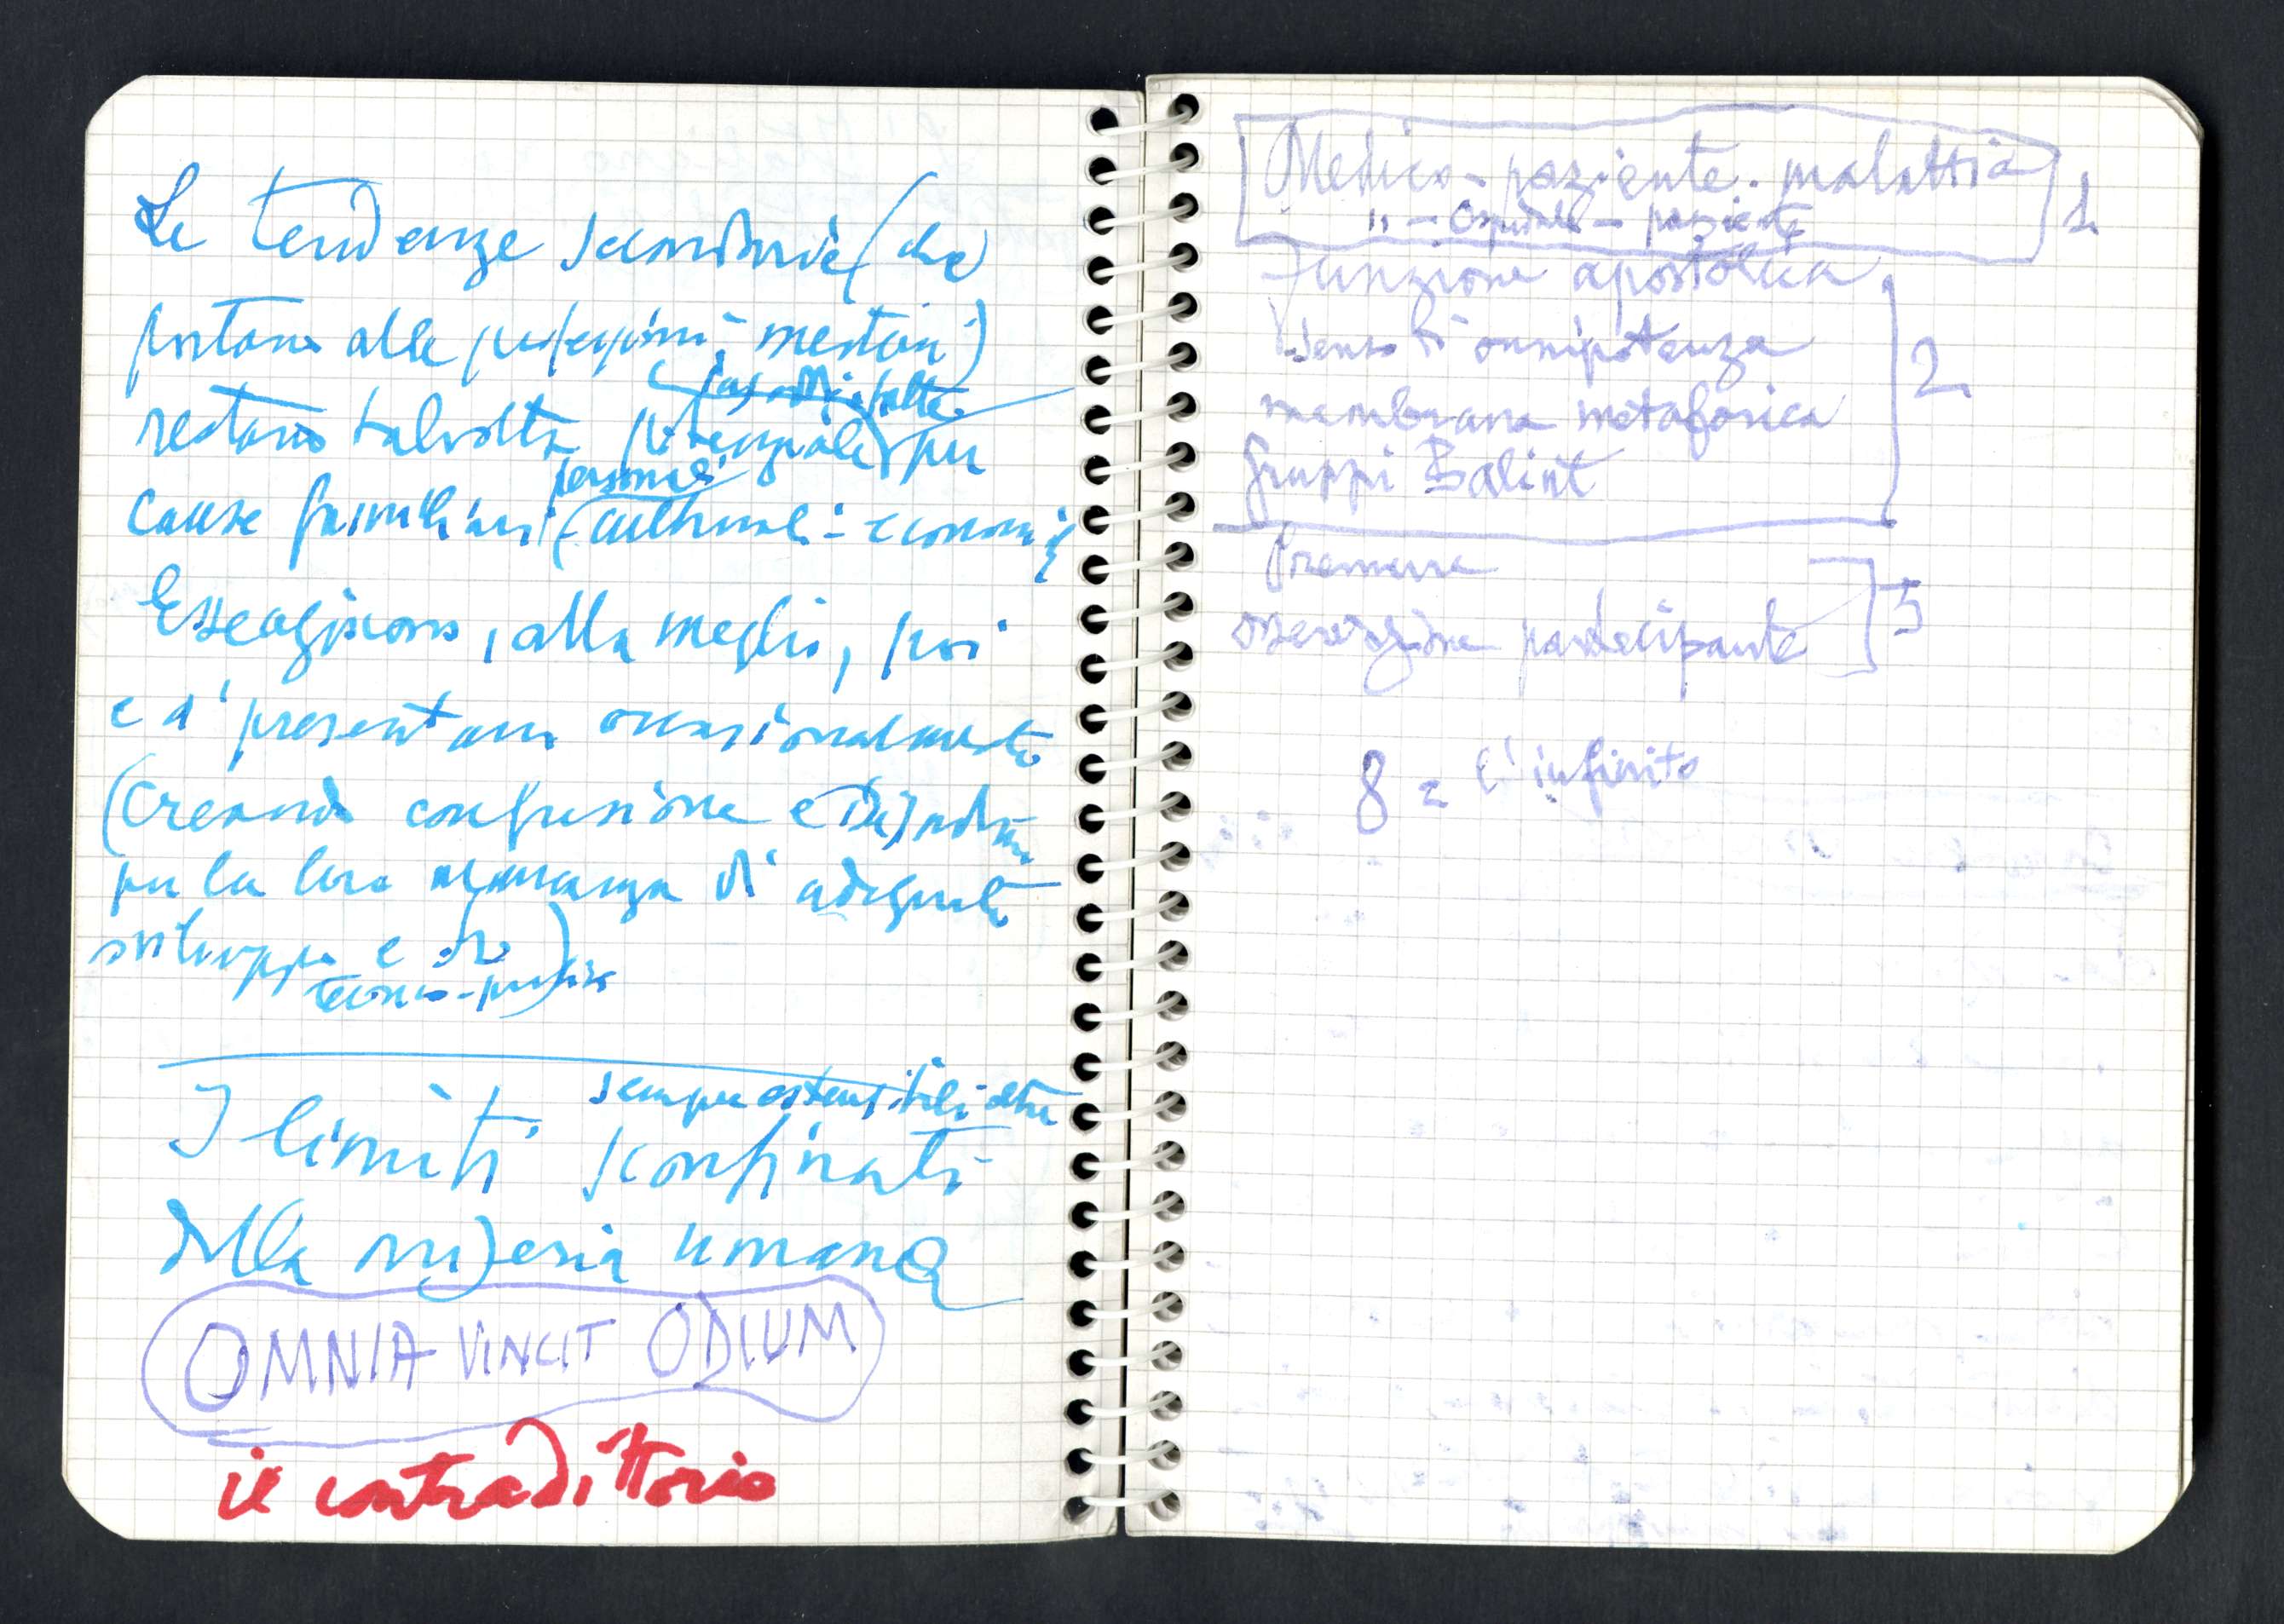 Le tendenze secondarie (che
portano alle professioni - mestieri)
restano talvolta potenziali per
personali
cause familiari (culturali - economi
Esse agiscono, alla meglio, poi
e si presentano occasionalmente
(creando confusione e
per la loro mancanza di adeguato
sviluppo e
tecnico-pratico
sempre estensibili oltre
I limiti sconfinati
della miseria umana
OMNIA VINCIT ODIUM
il contradittorio
Medico - paziente - malattia 1
" - Ospedale - paziente
Funzione apostolica
senso di onnipotenza 2
membrana metaforica
gruppi Balint
Premesse
osservazione partecipante 3
8 = l'infinito